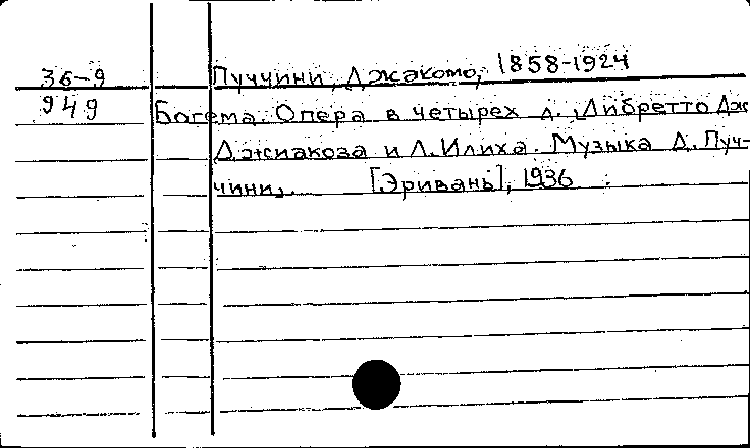 36-9 Пуччини, Джакомо, 1858-1924
949 Богема. Опера в четырех д. Либретто Дж
Джиакоза и Л. Илиха. Музыка Д. Пуч-
чини. [Эривань], 1936